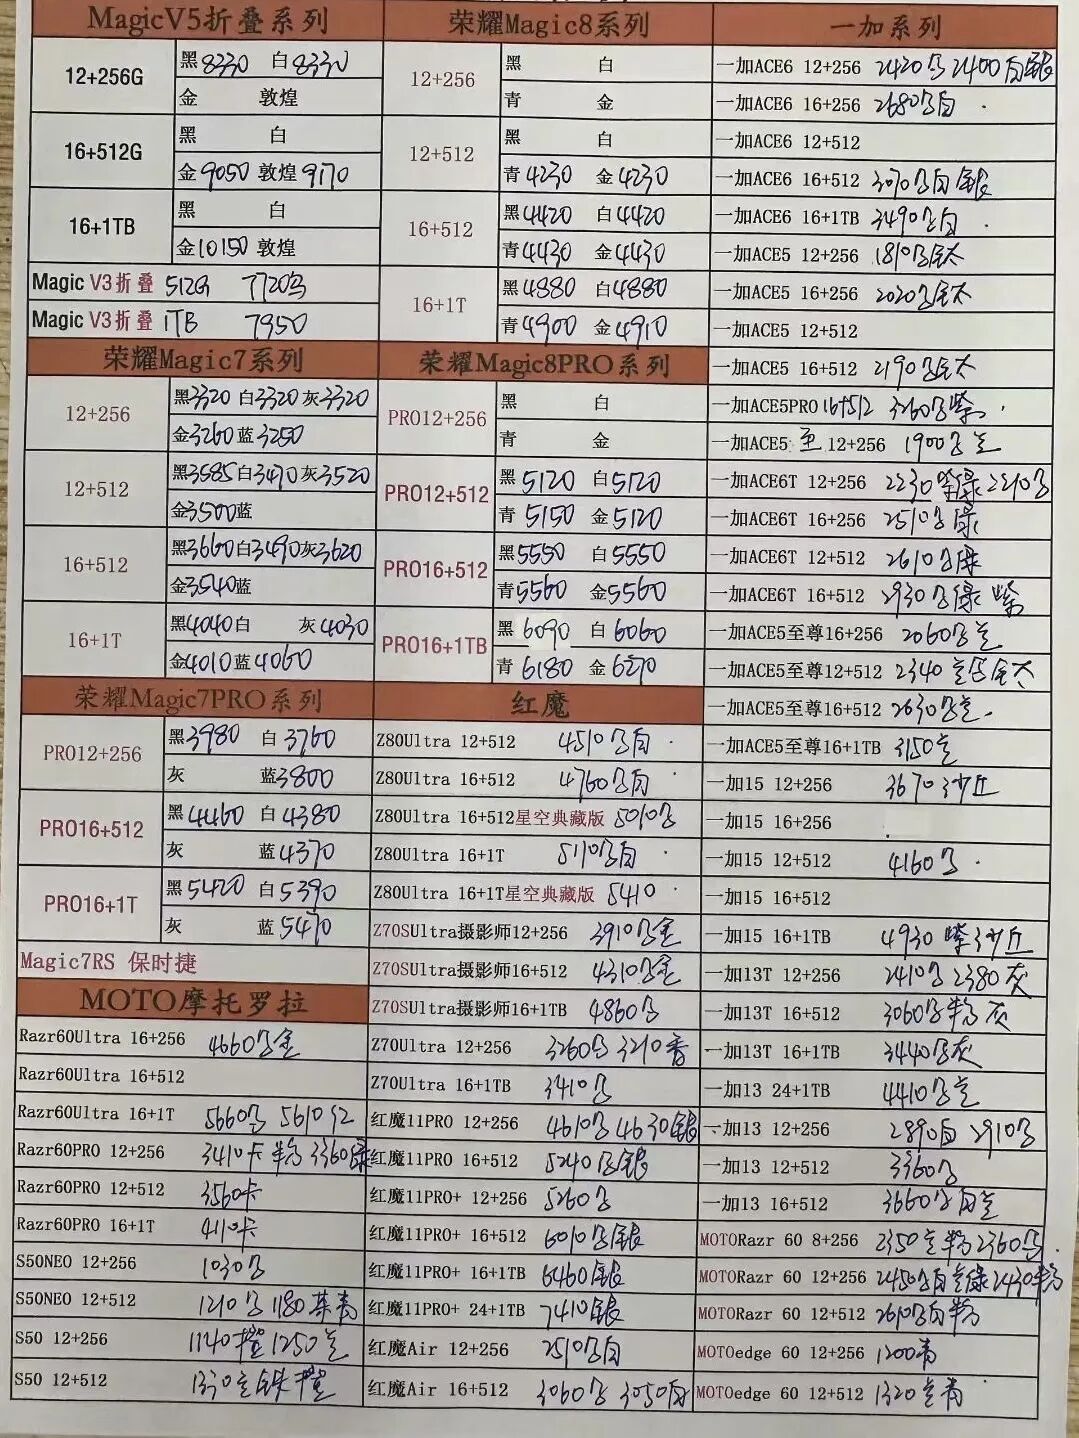 MagicV5折叠系列
12+256G
黑8330 白8330
金 敦煌
16+512G
黑 白
金9050 敦煌9170
16+1TB
黑 白
金10150 敦煌
Magic V3折叠 512G 7720
Magic V3折叠 1TB 7950
荣耀Magic7系列
12+256
黑3320 白3320 灰3320
金3260 蓝3250
12+512
黑3585 白3470 灰3520
金3500 蓝
16+512
黑3660 白3490 灰3620
金3540 蓝
16+1T
黑4040 白 灰4030
金4010 蓝4060
荣耀Magic7PRO系列
PRO12+256
黑3980 白3760
灰 蓝3800
PRO16+512
黑4460 白4380
灰 蓝4370
PRO16+1T
黑5420 白5390
灰 蓝5470
Magic7RS 保时捷
MOTO摩托罗拉
Razr60Ultra 16+256 4660 金
Razr60Ultra 16+512
Razr60Ultra 16+1T 5660 5610红
Razr60PRO 12+256 3410卡 3360绿
Razr60PRO 12+512 3560卡
Razr60PRO 16+1T 4110卡
S50NEO 12+256 1030
S50NEO 12+512 1210 1180 青
S50 12+256 1140橙 1250
S50 12+512 1330 橙
荣耀Magic8系列
12+256
黑 白
青 金
12+512
黑 白
青4230 金4230
16+512
黑4420 白4420
青4430 金4430
16+1T
黑4880 白4880
青4900 金4910
荣耀Magic8PRO系列
PRO12+256
黑 白
青 金
PRO12+512
黑5120 白5120
青5150 金5120
PRO16+512
黑5550 白5550
青5560 金5560
PRO16+1TB
黑6090 白6060
青6180 金6270
红魔
Z80Ultra 12+512 4510 白
Z80Ultra 16+512 4760 白
Z80Ultra 16+512星空典藏版 5010
Z80Ultra 16+1T 5110 白
Z80Ultra 16+1T星空典藏版 5410
Z70SUltra摄影师12+256 3910 金
Z70SUltra摄影师16+512 4310 金
Z70SUltra摄影师16+1TB 4860
Z70Ultra 12+256 3260 3210
Z70Ultra 16+1TB 3410
红魔11PRO 12+256 4610 4630银
红魔11PRO 16+512 5240 银
红魔11PRO+ 12+256 5260
红魔11PRO+ 16+512 6010 银
红魔11PRO+ 16+1TB 6460银
红魔11PRO+ 24+1TB 7410银
红魔Air 12+256 2510 白
红魔Air 16+512 3060 3050白
一加系列
一加ACE6 12+256 2420 2400白银
一加ACE6 16+256 2680 白
一加ACE6 12+512
一加ACE6 16+512 3070 白银
一加ACE6 16+1TB 3490 白
一加ACE5 12+256 1810 钛
一加ACE5 16+256 2020 钛
一加ACE5 12+512
一加ACE5 16+512 2190 钛
一加ACE5PRO 16+512 3260 紫
一加ACE5 至 12+256 1900
一加ACE6T 12+256 2230 紫绿 2210
一加ACE6T 16+256 2510 绿
一加ACE6T 12+512 2610 绿
一加ACE6T 16+512 2930 绿 紫
一加ACE5至尊16+256 2060
一加ACE5至尊12+512 2340 钛
一加ACE5至尊16+512 2630
一加ACE5至尊16+1TB 3150
一加15 12+256 3670 沙丘
一加15 16+256
一加15 12+512 4160
一加15 16+512
一加15 16+1TB 4930 紫 沙丘
一加13T 12+256 2410 2380灰
一加13T 16+512 3060 粉 灰
一加13T 16+1TB 3440 灰
一加13 24+1TB 4410
一加13 12+256 2890白 2910
一加13 12+512 3360
一加13 16+512 3660 白
MOTORazr 60 8+256 2350 粉 2360
MOTORazr 60 12+256 2450 白 绿 2430粉
MOTORazr 60 12+512 2610 白粉
MOTOedge 60 12+256 1200青
MOTOedge 60 12+512 1320 青